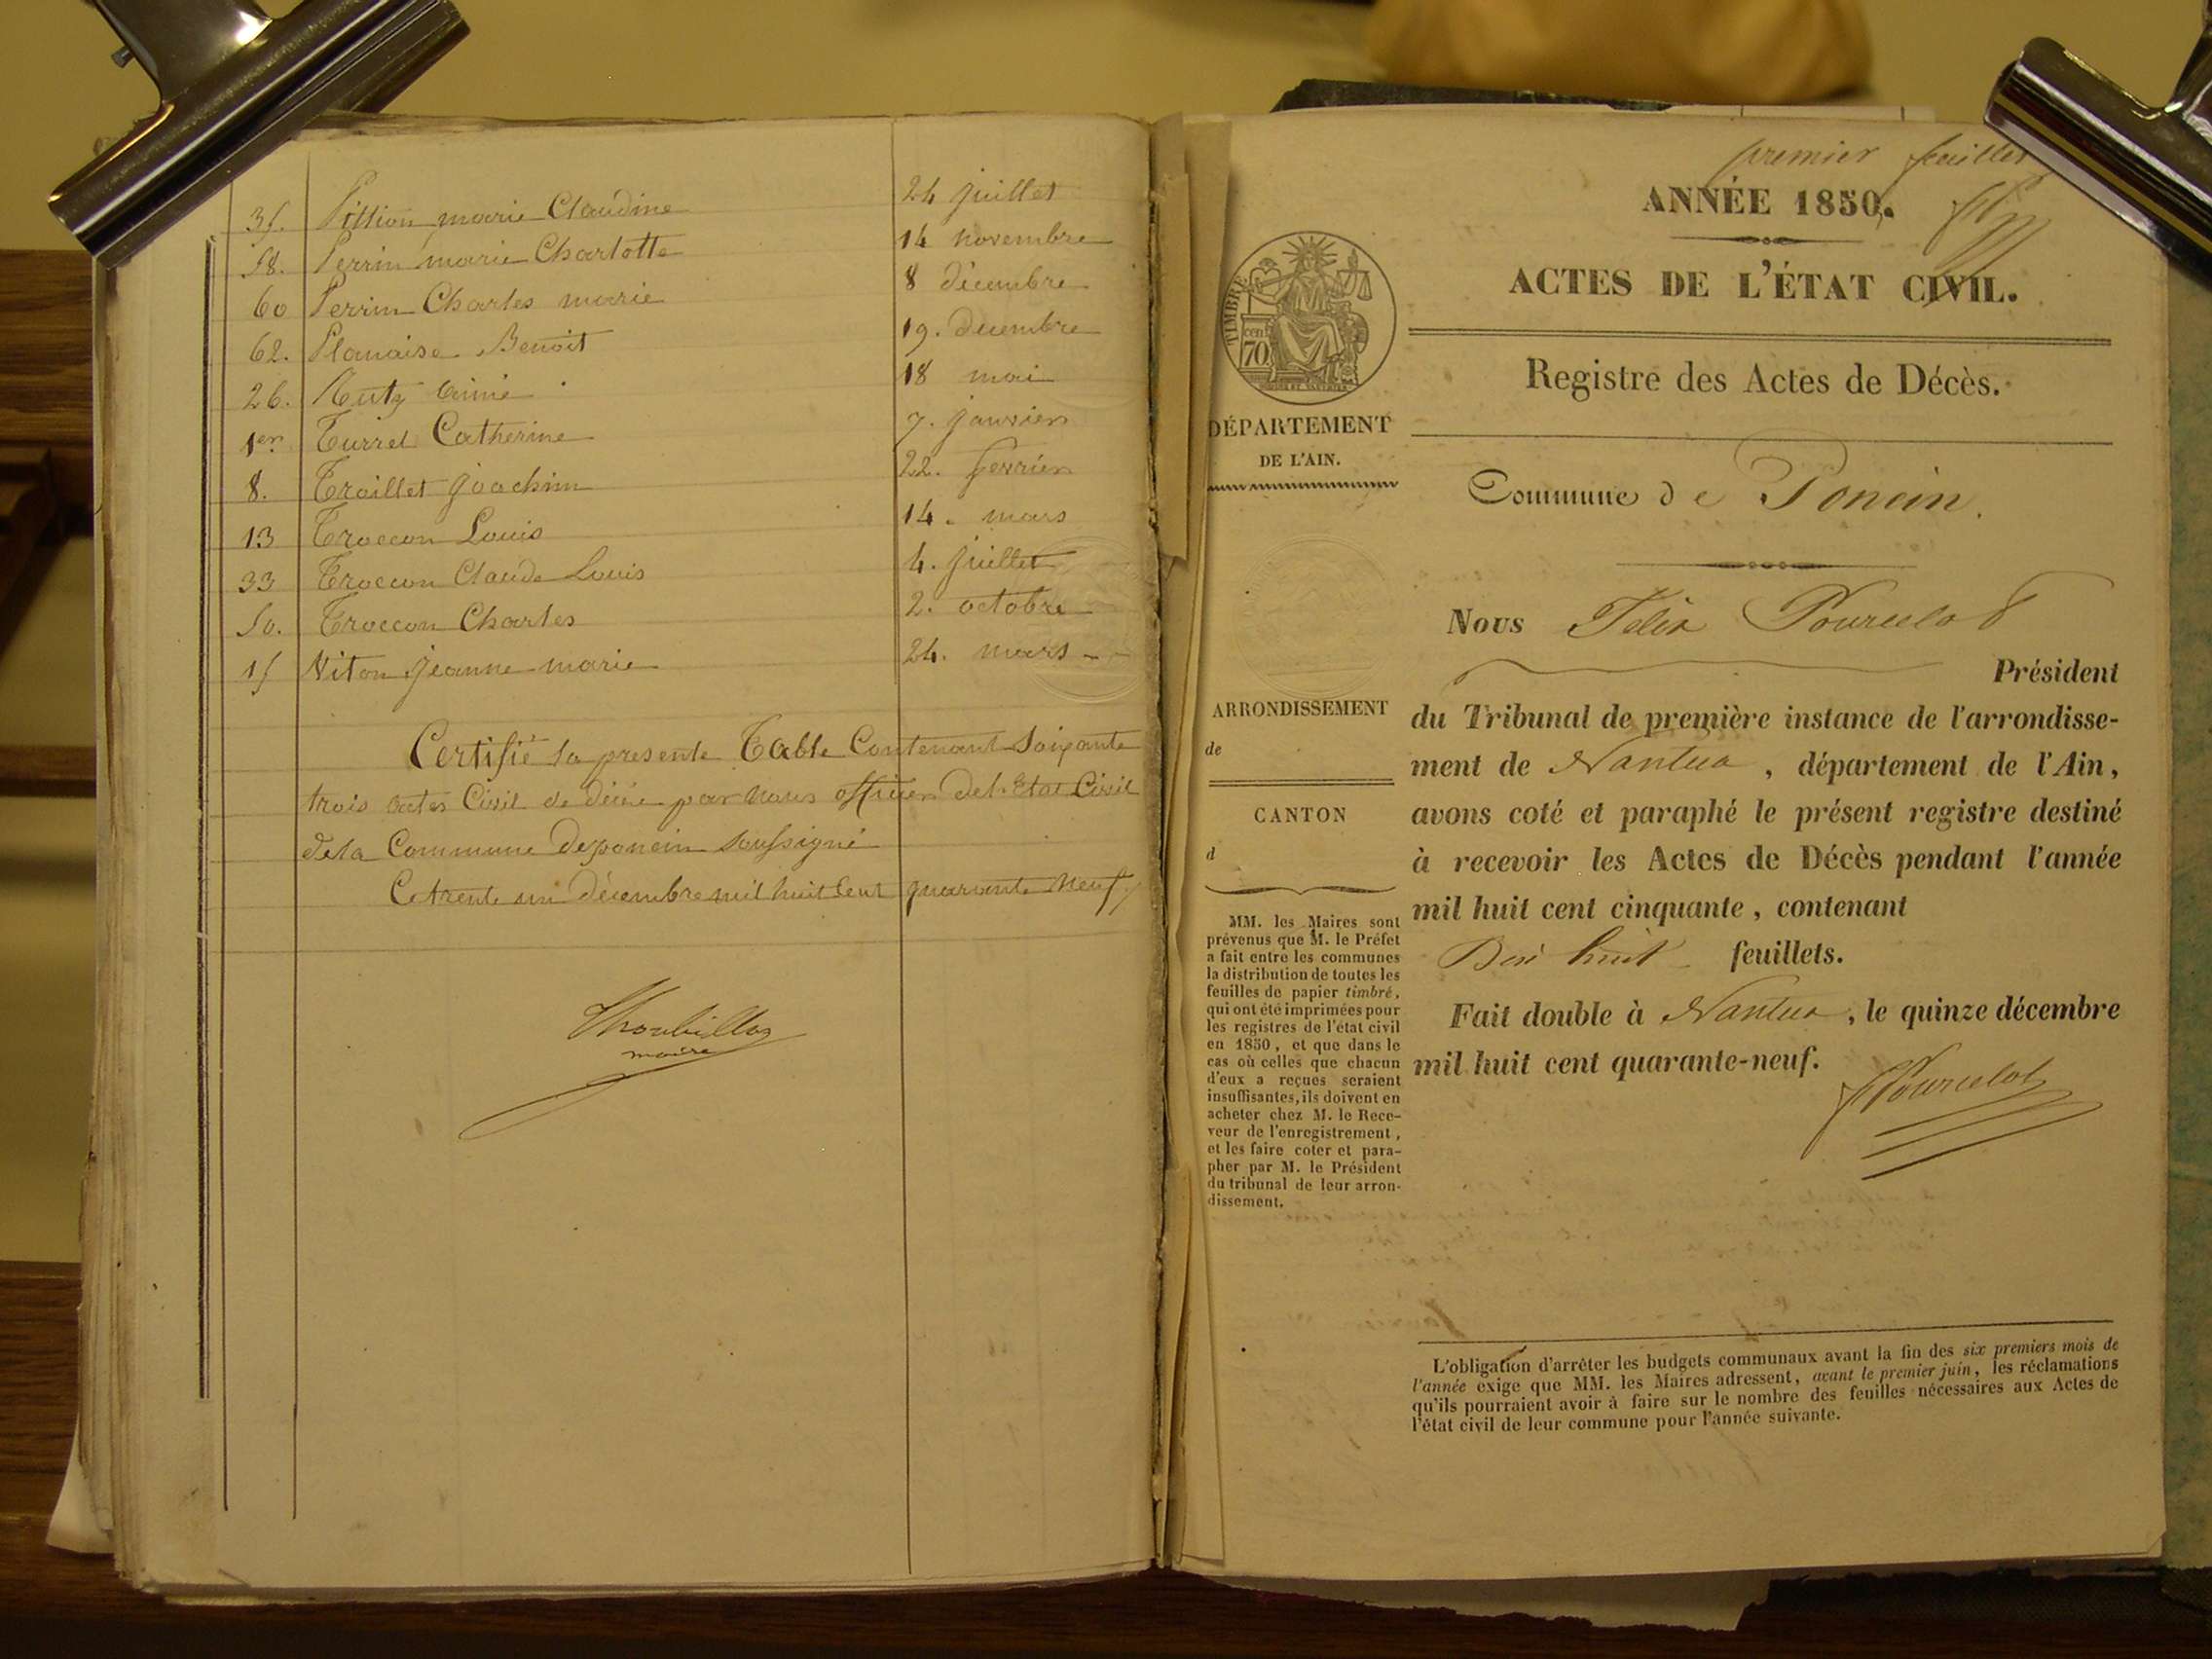 35. Pittion marie Claudine 24 juillet
58. Perrin marie Charlotte 14 novembre
60 Perrin Charles marie 8 décembre
62. Planaise Benoit 19. decembre
26. 18 mai
1er Turrel Catherine 7. janvier
8. Traillet Joachim 22. fevrier
13 Troccon Louis 14. mars
33 Troccon Claude Louis 4. juillet
50. Troccon Charles 2. octobre
15 Viton jeanne marie 24. mars
Certifié la presente Table Contenant Soixante
trois actes Civil de décès par nous officier de l'Etat Civil
de la Commune de poncin soussigné
Ce trente un décembre mil huit cent quarante neuf.
maire
premier feuillet
ANNÉE 1850.
ACTES DE L'ÉTAT CIVIL.
Registre des Actes de Décès.
TIMBRE
cen
70
DÉPARTEMENT
DE L'AIN.
Commune de Poncin.
Nous Félix Pourcelot
Président
du Tribunal de première instance de l'arrondisse-
ment de Nantua, département de l'Ain,
avons coté et paraphé le présent registre destiné
à recevoir les Actes de Décès pendant l'année
mil huit cent cinquante, contenant
Dix huit feuillets.
Fait double à Nantua, le quinze décembre
mil huit cent quarante-neuf.
FPourcelot
ARRONDISSEMENT
de
CANTON
d
MM. les Maires sont
prévenus que M. le Préfet
a fait entre les communes
la distribution de toutes les
feuilles de papier timbré,
qui ont été imprimées pour
les registres de l'état civil
en 1850, et que dans le
cas où celles que chacun
d'eux a reçues seraient
insuffisantes, ils doivent en
acheter chez M. le Rece-
veur de l'enregistrement,
et les faire coter et para-
pher par M. le Président
du tribunal de leur arron-
dissement.
L'obligation d'arrêter les budgets communaux avant la fin des six premiers mois de
l'année exige que MM. les Maires adressent, avant le premier juin, les réclamations
qu'ils pourraient avoir à faire sur le nombre des feuilles nécessaires aux Actes de
l'état civil de leur commune pour l'année suivante.